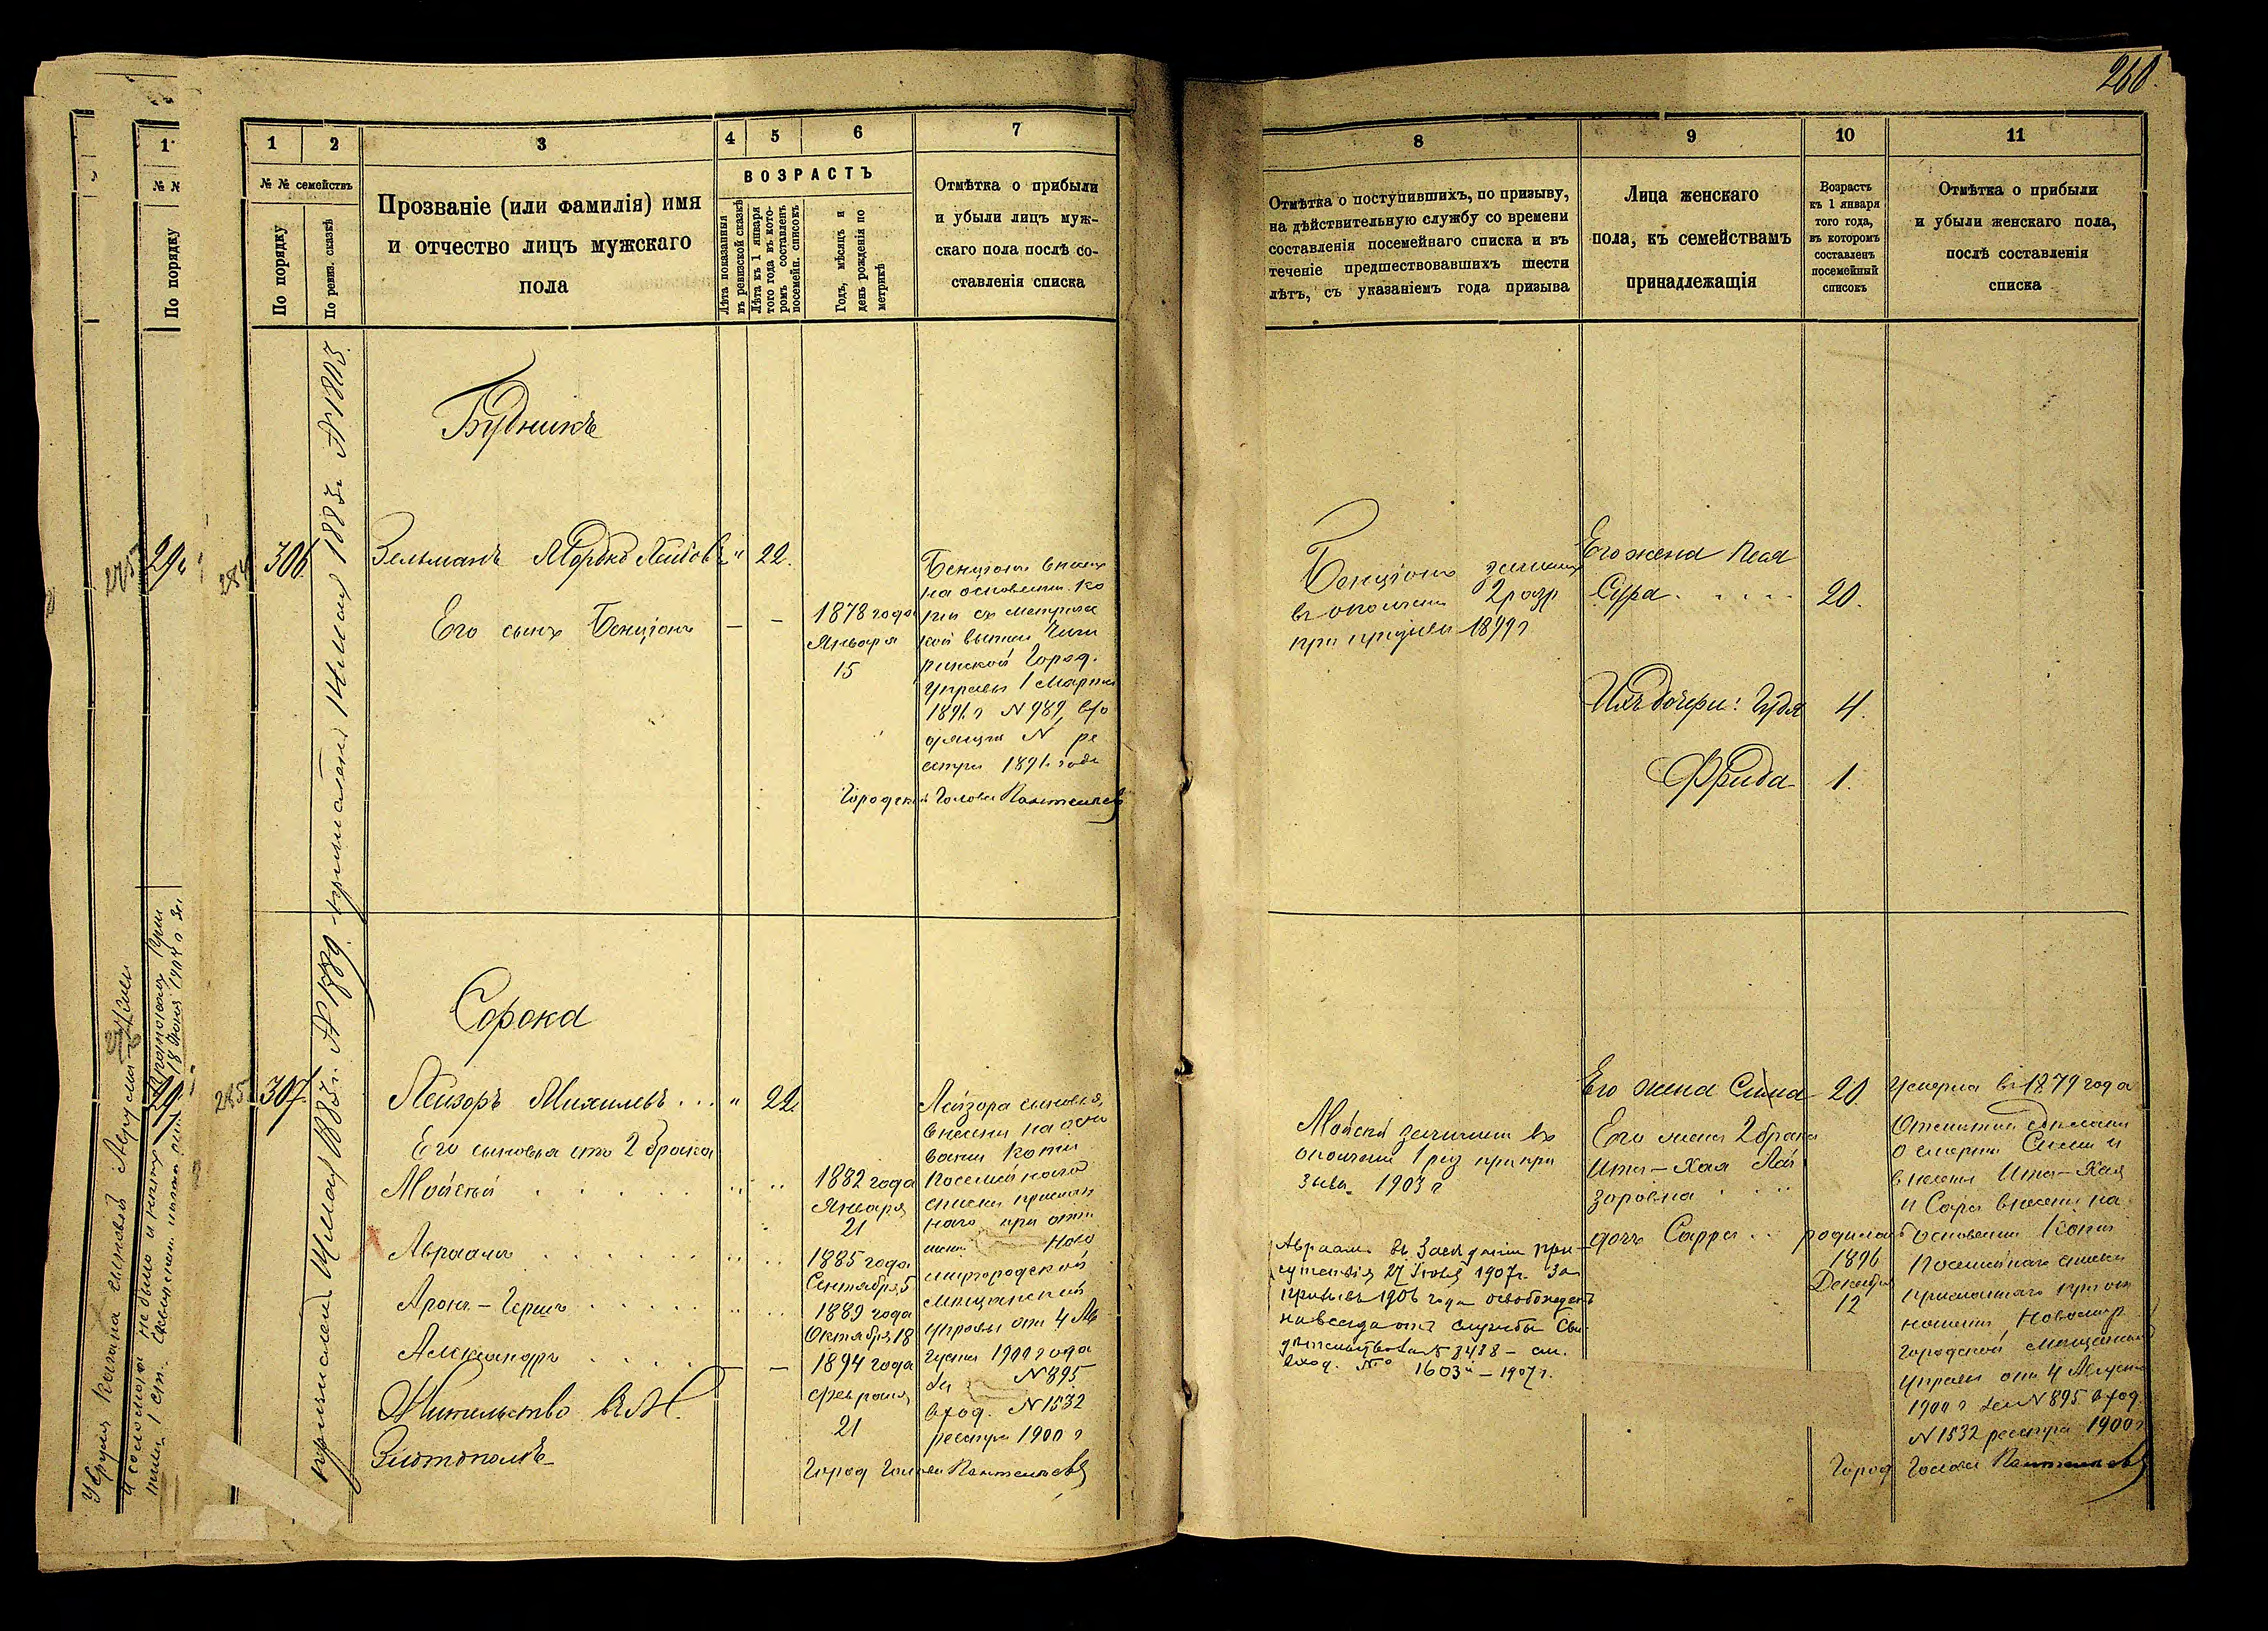 260.
1
№ №
По порядку
1
2
3
4
5
6
7
№ № семействъ
По порядку
По ревиз. сказкѣ
Прозваніе (или фамилія) имя
и отчество лицъ мужскаго
пола
ВОЗРАСТЪ
Лѣта показанныя
въ ревизской сказкѣ
Лѣта къ 1 января
того года въ кото-
ромъ составленъ
посемейн. списокъ
Годъ, мѣсяцъ и
день рожденія по
метрикѣ
Отмѣтка о прибыли
и убыли лицъ муж-
скаго пола послѣ со-
ставленія списка
285
29
284
306.
Будникъ
Зельманъ Мордко Лейбовъ " 22.
Его сынъ Бенціонъ — —
1878 года
Января
15
Бенціонъ внесенъ
на основаніи ко
піи съ метриче
ской
Город.
Управы 1 Марта
1891 г № 989,
№ ре
естра 1891 года
Городской Голова
285
307.
Сорока
Лейзоръ Михилевъ . . . " 22.
Его сыновья отъ 2 брака
Мойсей
1882 года
Января
21
Авраамъ
1885 года
Сентября 5
Аронъ-Гершъ
1889 года
Октября 18
Александръ — —
1894 года
Февраля
21
Жительство въ М.
Златополѣ
Лейзора сыновья
внесены на осно
ваніи копіи
посемейнаго
списка прислан
наго при отно
шеніи Ново
миргородской
мѣщанской
управы отъ 4 Ав
густа 1900 года
за № 895
вход. № 1532
реестра 1900 г
Город Голова
8
9
10
11
Отмѣтка о поступившихъ, по призыву,
на дѣйствительную службу со времени
составленія посемейнаго списка и въ
теченіе предшествовавшихъ шести
лѣтъ, съ указаніемъ года призыва
Лица женскаго
пола, къ семействамъ
принадлежащія
Возрастъ
къ 1 января
того года,
въ которомъ
составленъ
посемейный
списокъ
Отмѣтка о прибыли
и убыли женскаго пола,
послѣ составленія
списка
Бенціонъ зачисленъ
въ ополченіе 2 разр
при призывѣ 1899 г
Его жена Песя
Сура . . . . 20.
Ихъ дочери: Гудя 4.
Фрида 1.
Мойсей зачисленъ въ
ополченіе 1 раз при при
зывѣ 1903 г
Авраамъ въ Засѣданіи при-
сутствія 27 1907 г. за
призывъ 1906 года освобожденъ
навсегда отъ службы Сви-
дѣтельство за № 8488 – см.
вход. № 1603 – 1907 г.
Его жена Сима 20.
Его жена 2 брака
Ита-Хая Лей
зоровна
дочь Сарра . . родилась
1896
Декабря
12
Умерла въ 1879 года
Отмѣтка сдѣлана
о смерти Симы и
внесены Ита-Хая
и Сара внесены на
основаніи копіи
посемейнаго списка
присланнаго при от
ношеніи Новомир
городской мѣщанской
управы отъ 4 Августа
1900 г за № 895 вход.
№ 1532 реестра 1900 г
Город Голова